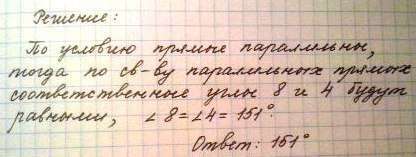 Решение:
По условию прямые параллельны,
тогда по св-ву параллельных прямых
соответственные углы 8 и 4 будут
равными, ∠8=∠4=151°.
Ответ: 151°